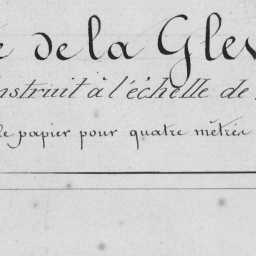 de la Glev
nstruit à l'échelle de
le papier pour quatre mètres